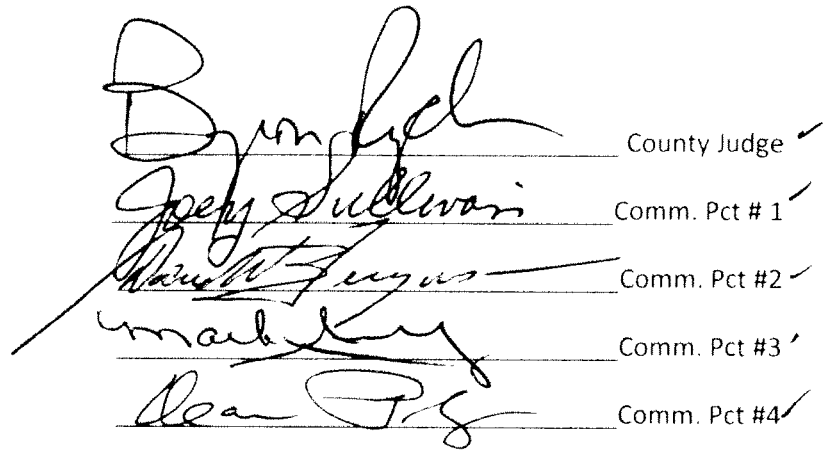 Byron County Judge
Joey Sullivan Comm. Pct # 1
Comm. Pct #2
Mark Comm. Pct #3
Dean Comm. Pct #4